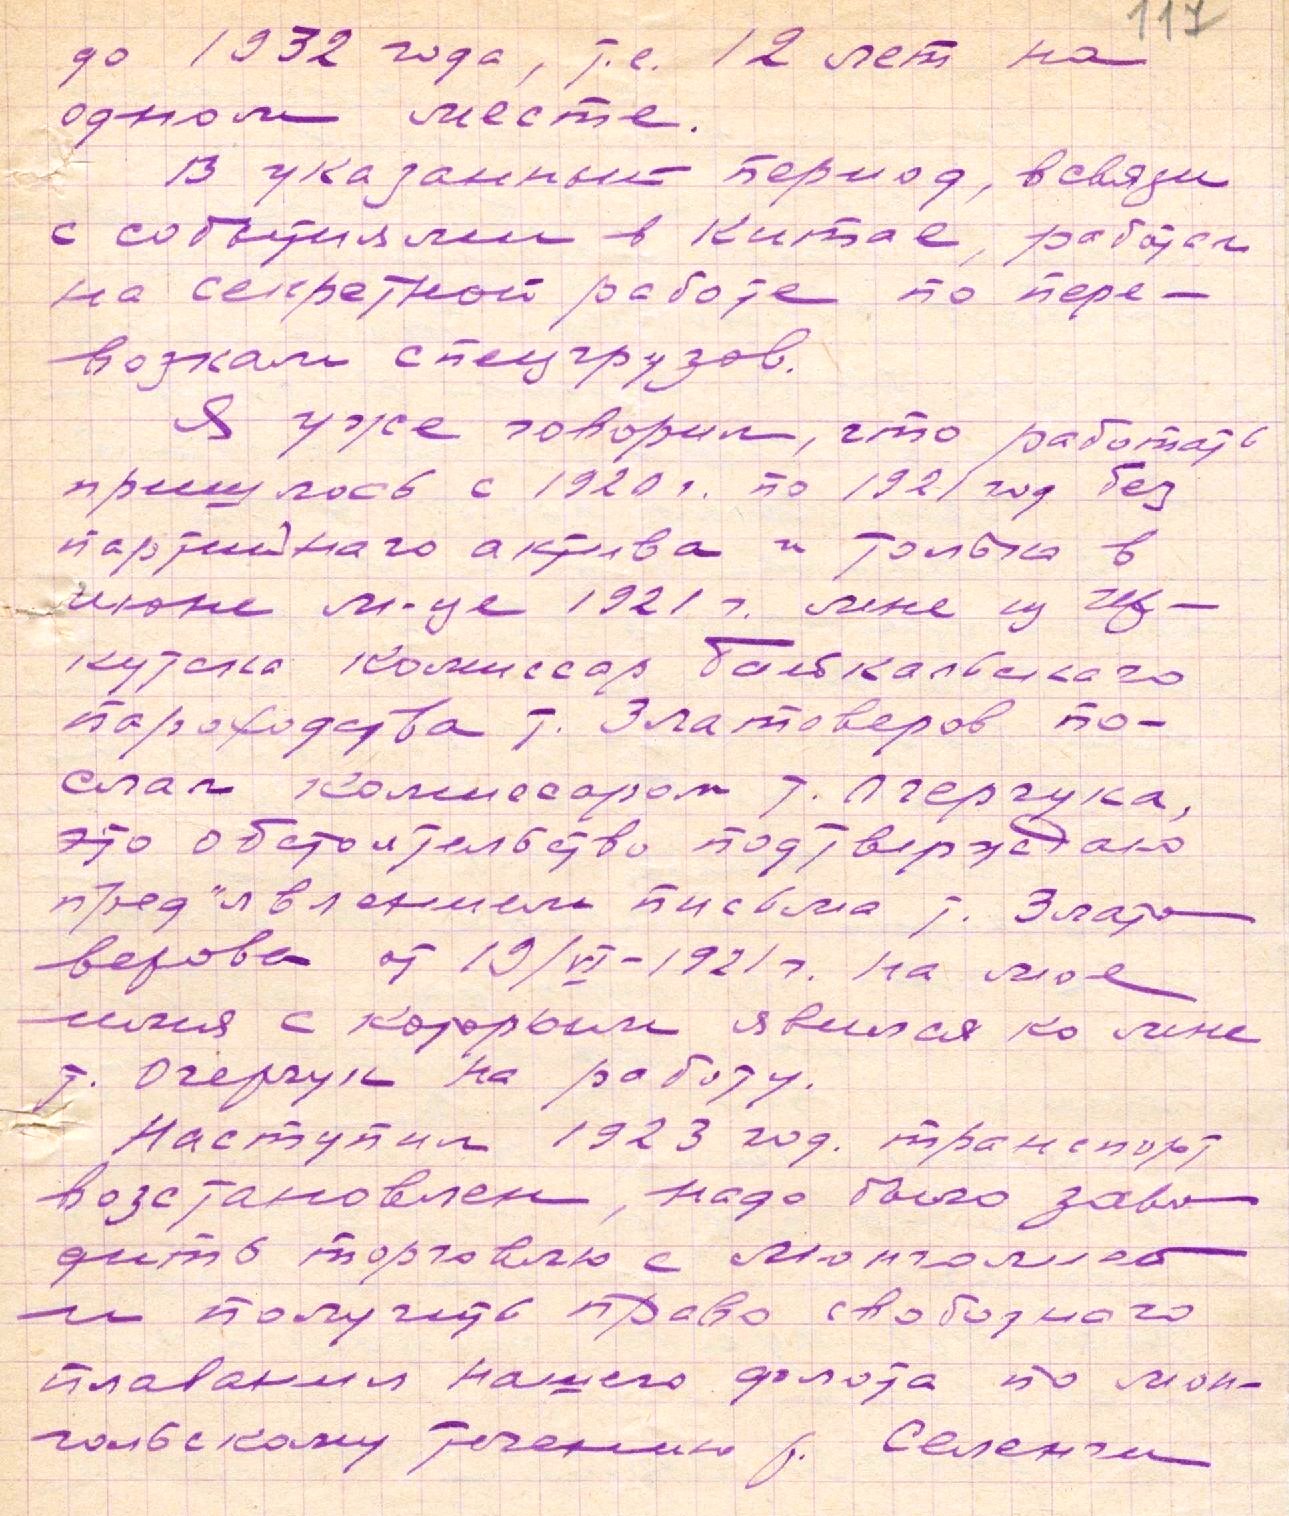 117
до 1932 года, т.е. 12 лет на
одном месте.
В указанный период, всвязи
с событиями в Китае, работал
на секретной работе по пере-
возкам спецгрузов.
Я уже говорил, что работать
пришлось с 1920 г. по 1921 год без
партийнаго актива и только в
июне м-це 1921 г. мне из Ир-
кутска комиссар Байкальскаго
пароходства т. Златоверов по-
слал комиссаром т. Очерчука,
это обстоятельство подтверждаю
пред"явлением письма т. Злато
верова от 19/VI-1921 г. на мое
имя с которым явился ко мне
т. Очерчук на работу.
Наступил 1923 год. транспорт
возстановлен, надо было заво
дить торговлю с Монголией
и получить право свободнаго
плавания нашего флота по мон-
гольскому течению р. Селенги